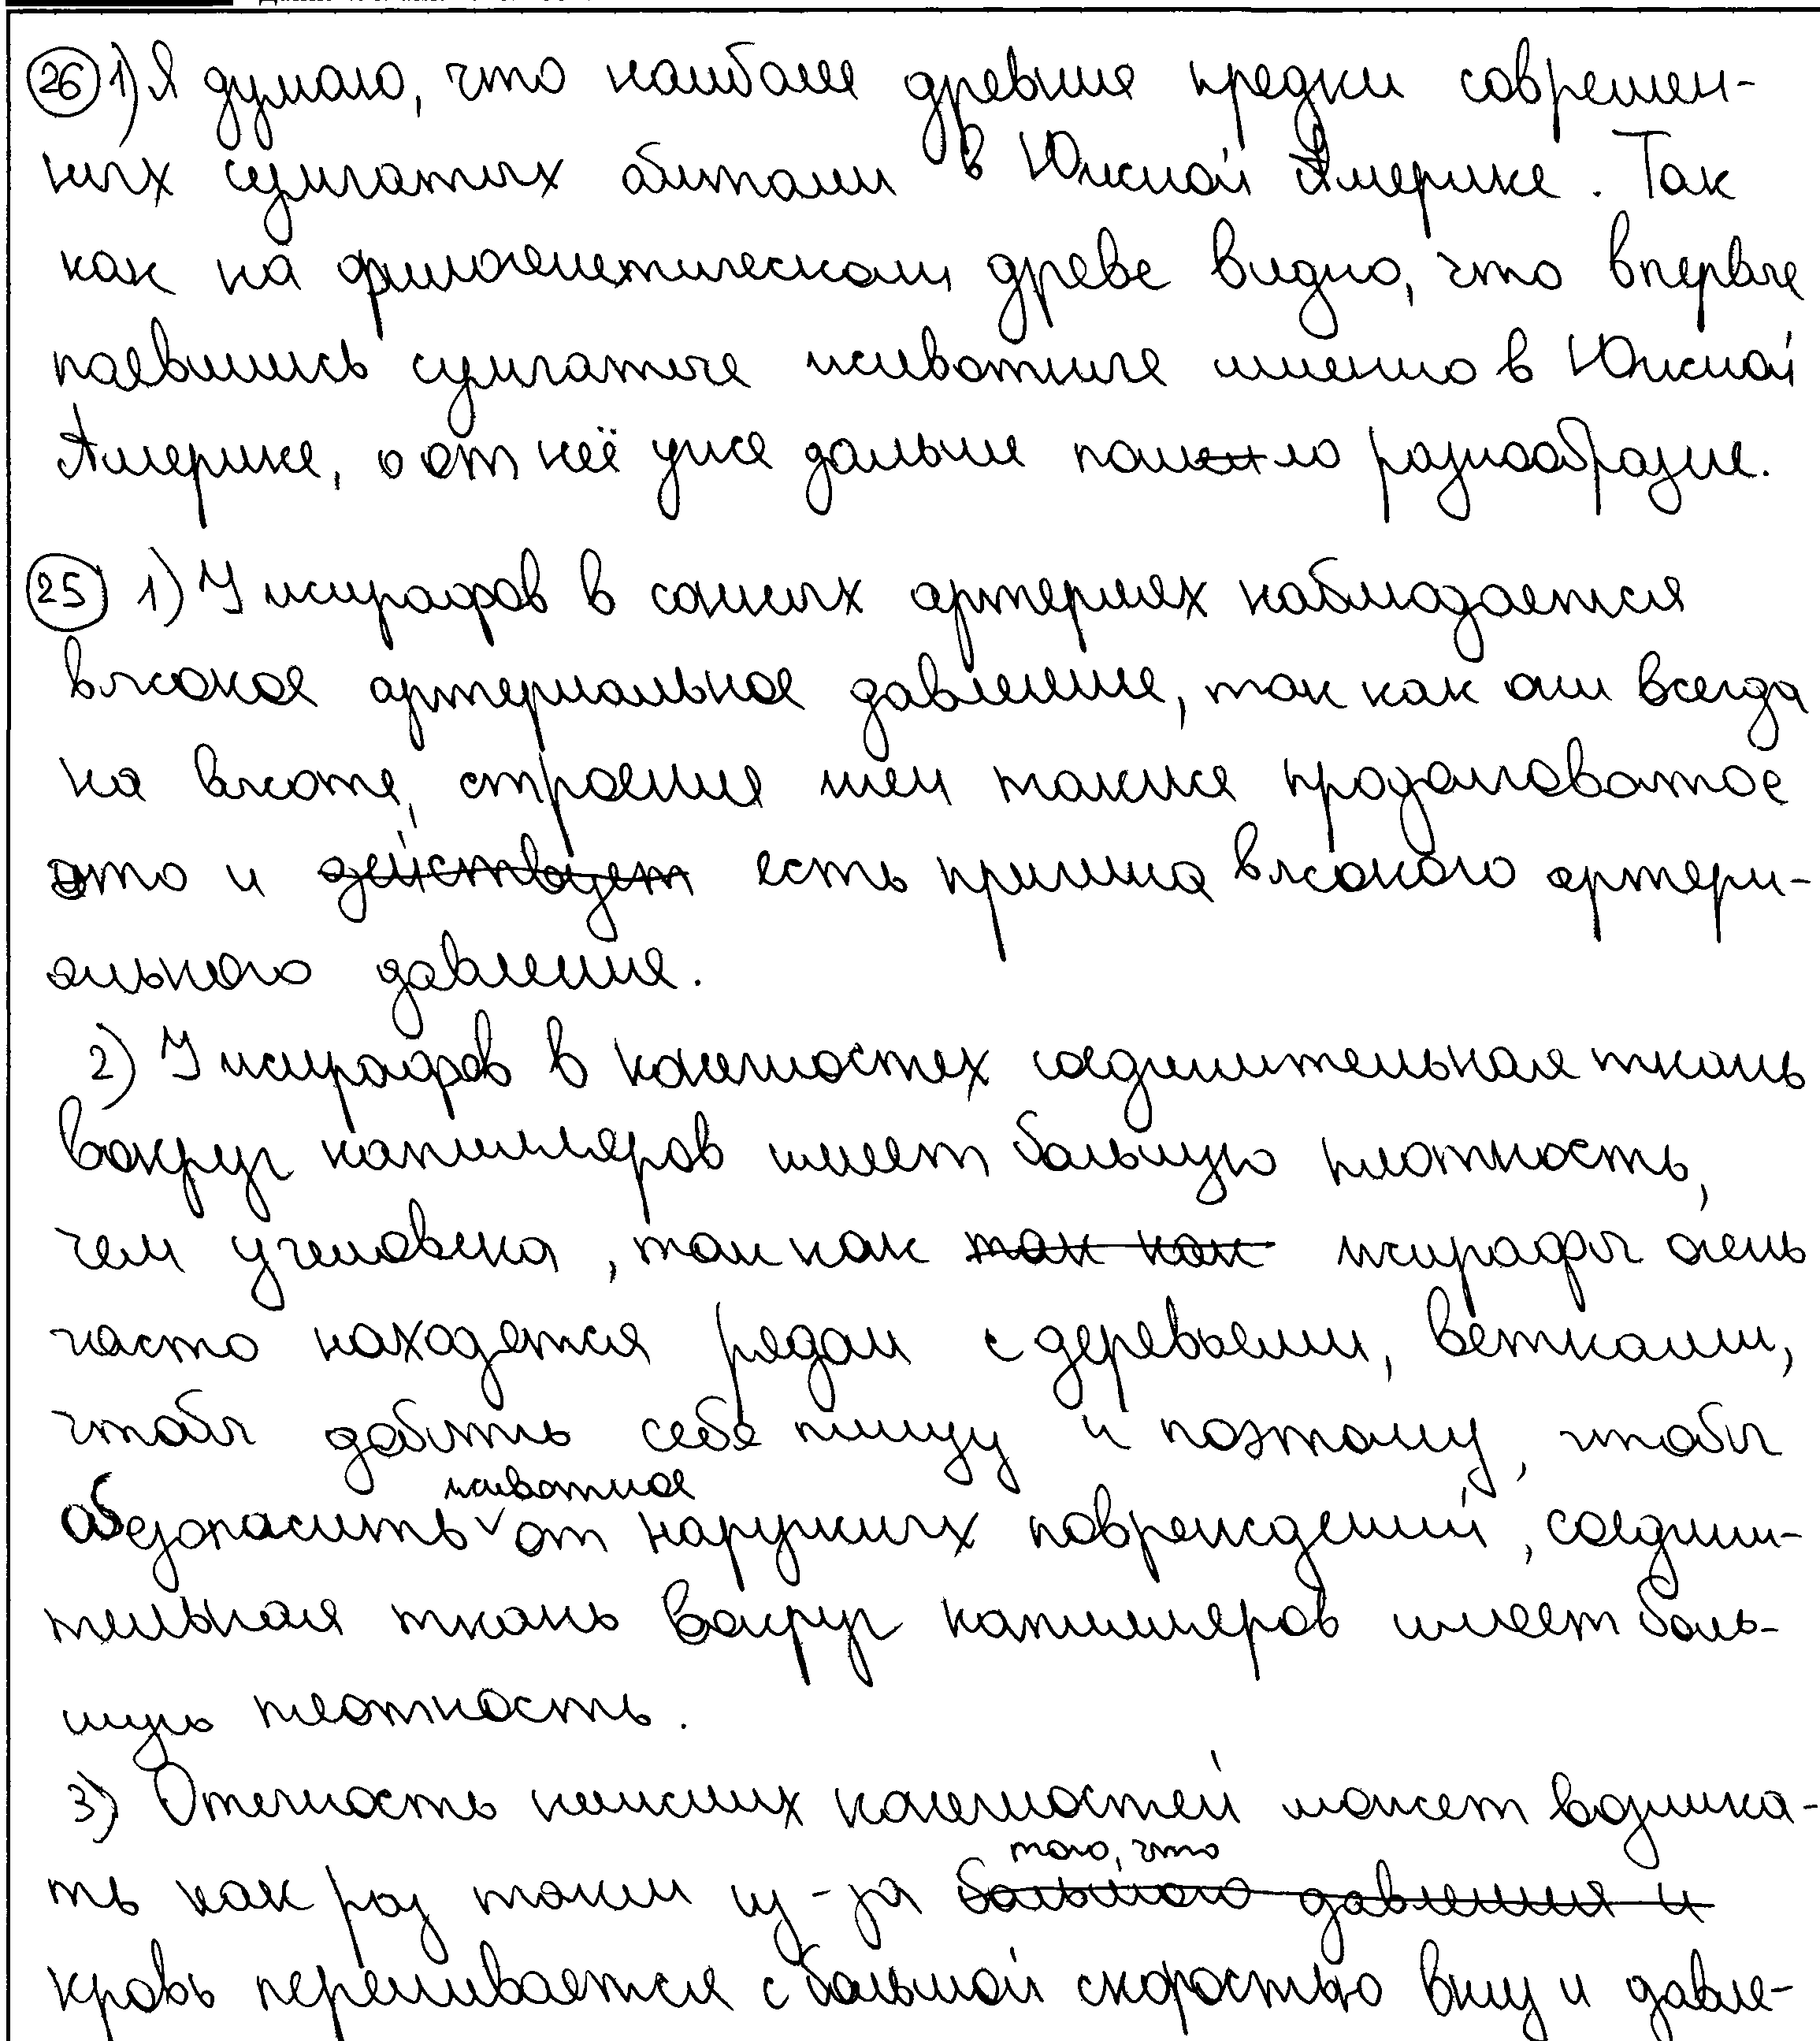 26 1) Я думаю, что наиболее древние предки современ-
ных сумчатых обитали в Южной Америке. Так
как на филогенетическом древе видно, что впервые
появились сумчатые животные именно в Южной
Америке, а от неё уже дальше пошло разнообразие.
25 1) У жирафов в сонных артериях наблюдается
высокое артериальное давление, так как они всегда
на высоте, строение шеи также продолговатое
это и действует есть причина высокого артери-
ального давления.
2) У жирафов в конечностях соединительная ткань
вокруг капилляров имеет большую плотность,
чем у человека, так как так как жирафы очень
часто находятся рядом с деревьями, ветками,
чтобы добыть себе пищу и поэтому, чтобы
животное
обезопасить от наружних повреждений, соедини-
тельная ткань вокруг капилляров имеет боль-
шую плотность.
3) Отечность нижних конечностей может возника-
того, что
ть как раз таки из-за большого давления и
кровь переливается с большой скоростью вниз и давле-